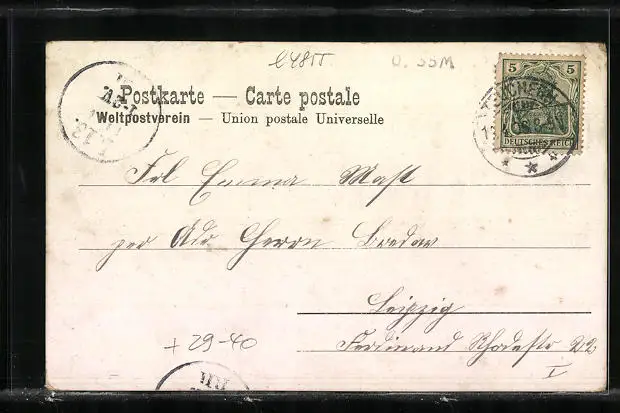 Postkarte — Carte postale
Weltpostverein — Union postale Universelle
5 5
DEUTSCHES REICH
Frl Emma Mast
per Adr Herrn Bredow
Leipzig
Ferdinand Rhodestr 22
I
+ 29-40